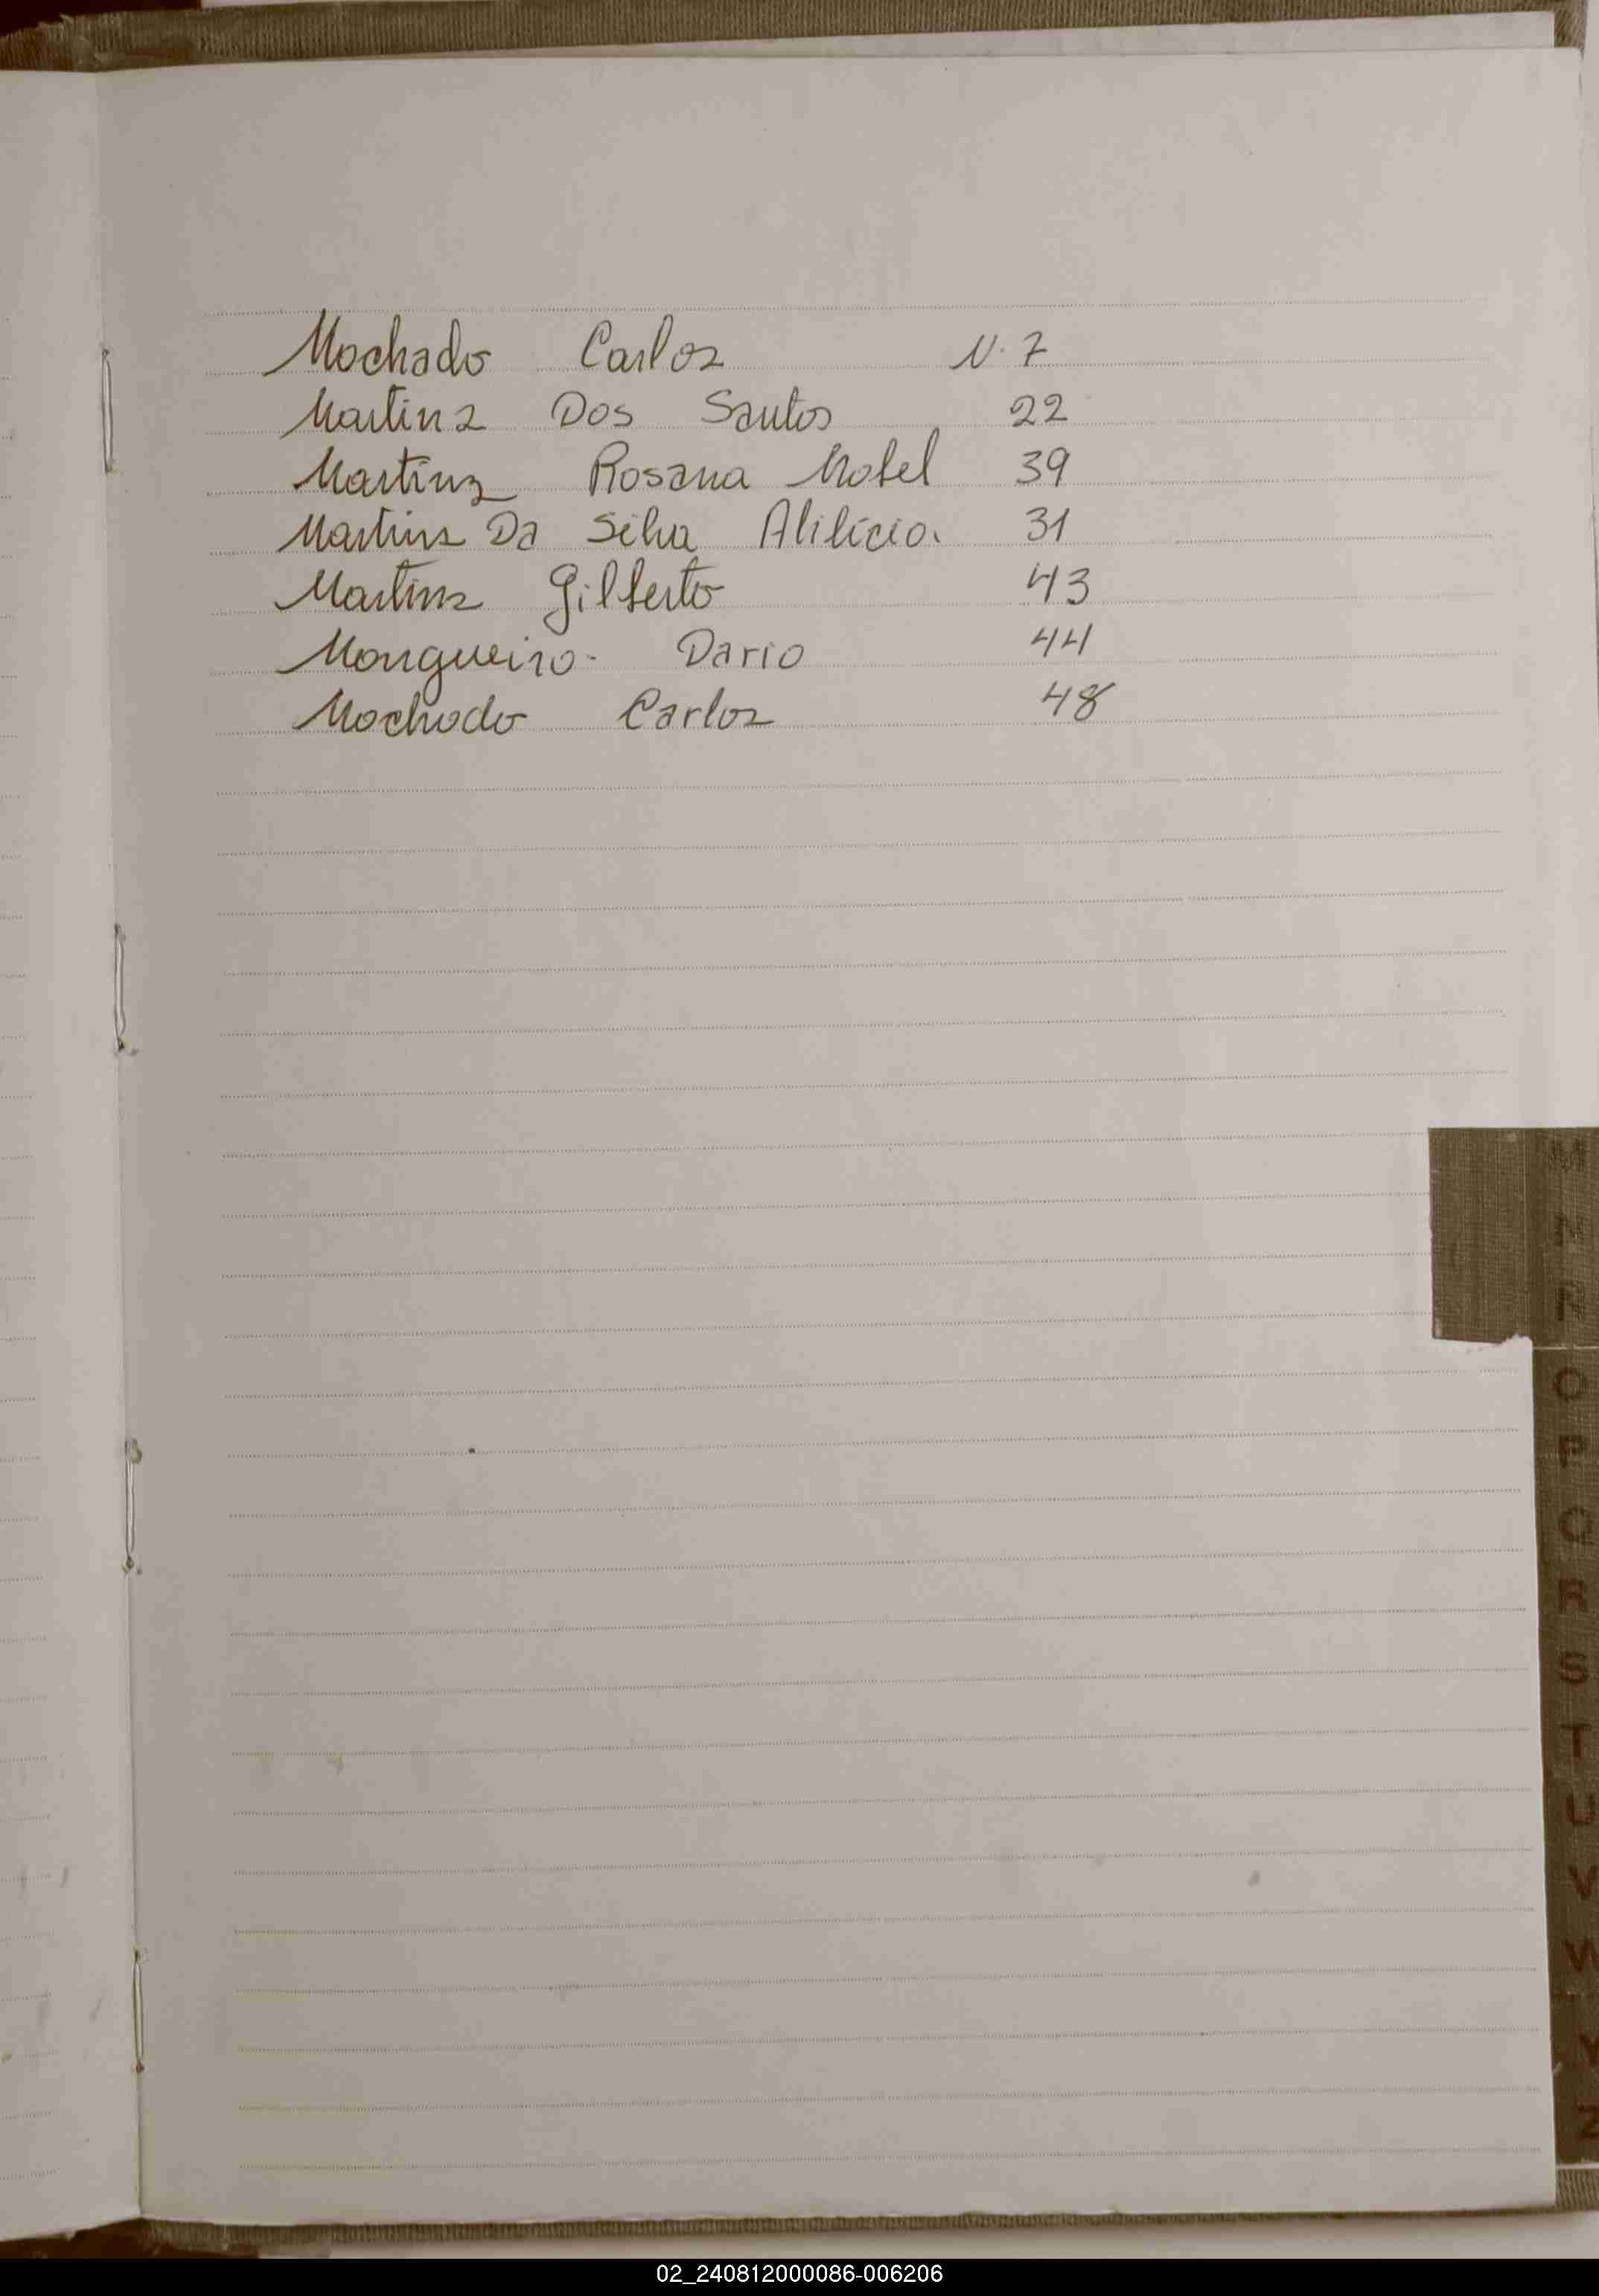 Machado Carlos N. 7
Martins Dos Santos 22
Martins Rosana Mabel 39
Martins Da Silva 31
Martins Gilberto 43
Mongueiro - Dario 44
Machado Carlos 48
M
N
Ñ
O
P
Q
R
S
T
U
V
W
Y
Z
02_240812000086-006206